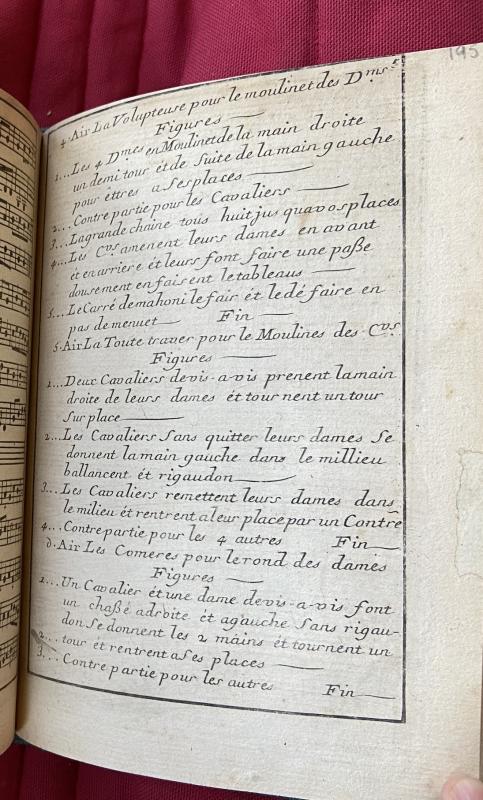 195
4. Air La Volupteuse pour le moulinet des D.mes
Figures
1... Les 4 D.mes en Moulinet de la main droite
un demi tour et de suite de la main gauche
pour êttres a Ses places
2... Contre partie pour les Cavaliers
3... Lagrande chaine tous huit jus quavos places
4... Les C.vs amenent leurs dames en avant
et en arriere ét leurs font faire une paße
dousement en faisent le tableaus
5... Le Carré de mahoni le fair ét le dé faire en
pas de menuet Fin
5. Air La Toute traver pour le Moulines des C.vs
Figures
1... Deux Cavaliers devis-a-vis prenent lamain
droite de leurs dames ét tournent un tour
Sur place
2... Les Cavaliers Sans quitter leurs dames Se
donnent la main gauche dans le millieu
ballancent ét rigaudon
3... Les Cavaliers remettent leurs dames dans
le milieu ét rentrent a leur place par un Contre
4... Contre partie pour les 4 autres Fin
6. Air Les Comeres pour le rond des dames
Figures
1... Un Cavalier ét une dame devis-a-vis font
un chaßé adroite et agauche Sans rigau-
don Se donnent les 2 mains ét tournent un
2... tour ét rentrent a Ses places
3... Contre partie pour les autres Fin